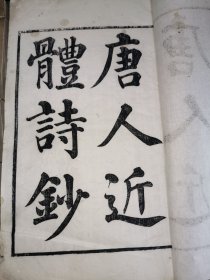 唐人近
體詩鈔